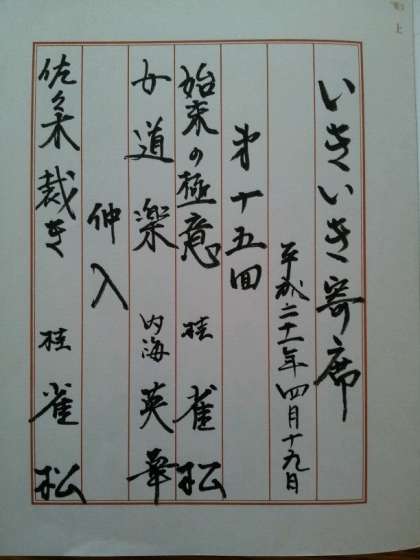 いきいき寄席
平成二十一年四月十九日
第十五回
始末の極意 桂 雀松
女道楽 内海 英華
仲入
佐々木裁き 桂 雀松
上